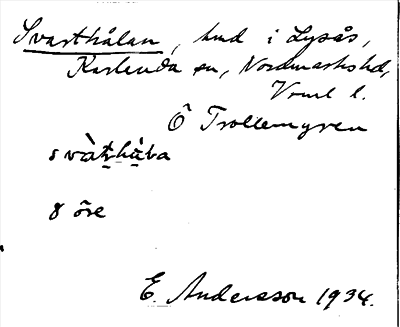 Svarthålan, hmd i Lysås,
Karlanda sn, Nordmarks hd,
Vrml l.
Ö Trollemyren
svàt̀hàla
8 öre
E. Andersson 1934.